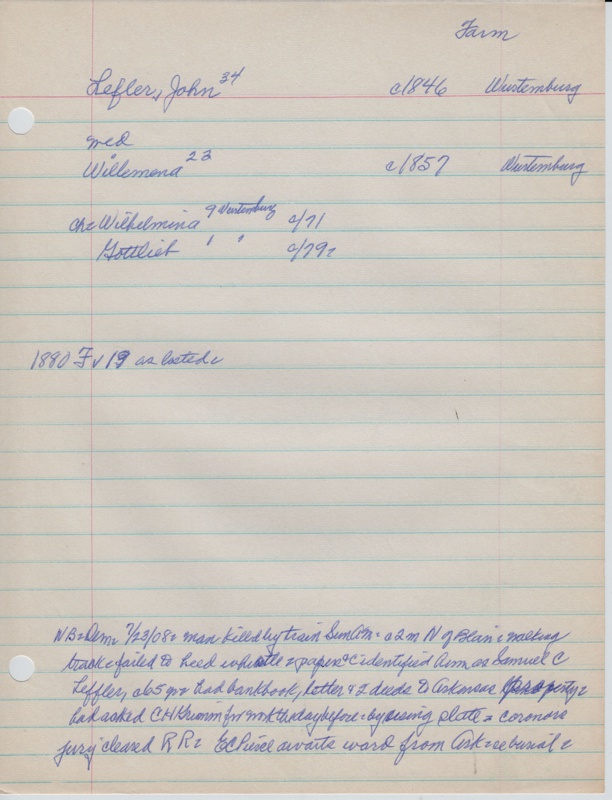 Farm
Lefler, John 34 c1846 Wurtemburg
med
Willemena 23 c1857 Wurtemburg
ch= Wilhelmina 9 Wurtemburg c/71
Gottlieb 1 " c/79=
1880 F v 19 as listed=
NB= Dem= 7/23/08= man killed by train Sun AM= c2m N of Blair= walking
track= failed to heed whistle= papers &c identified him as Samuel C
Leffler, c65 yr= had bankbook, letter & 2 deeds to Arkansas property=
had asked C H Grimm for work the day before= by using slate= coroners
jury cleared RR= EC Pierce awaits word from Ark= re burial=